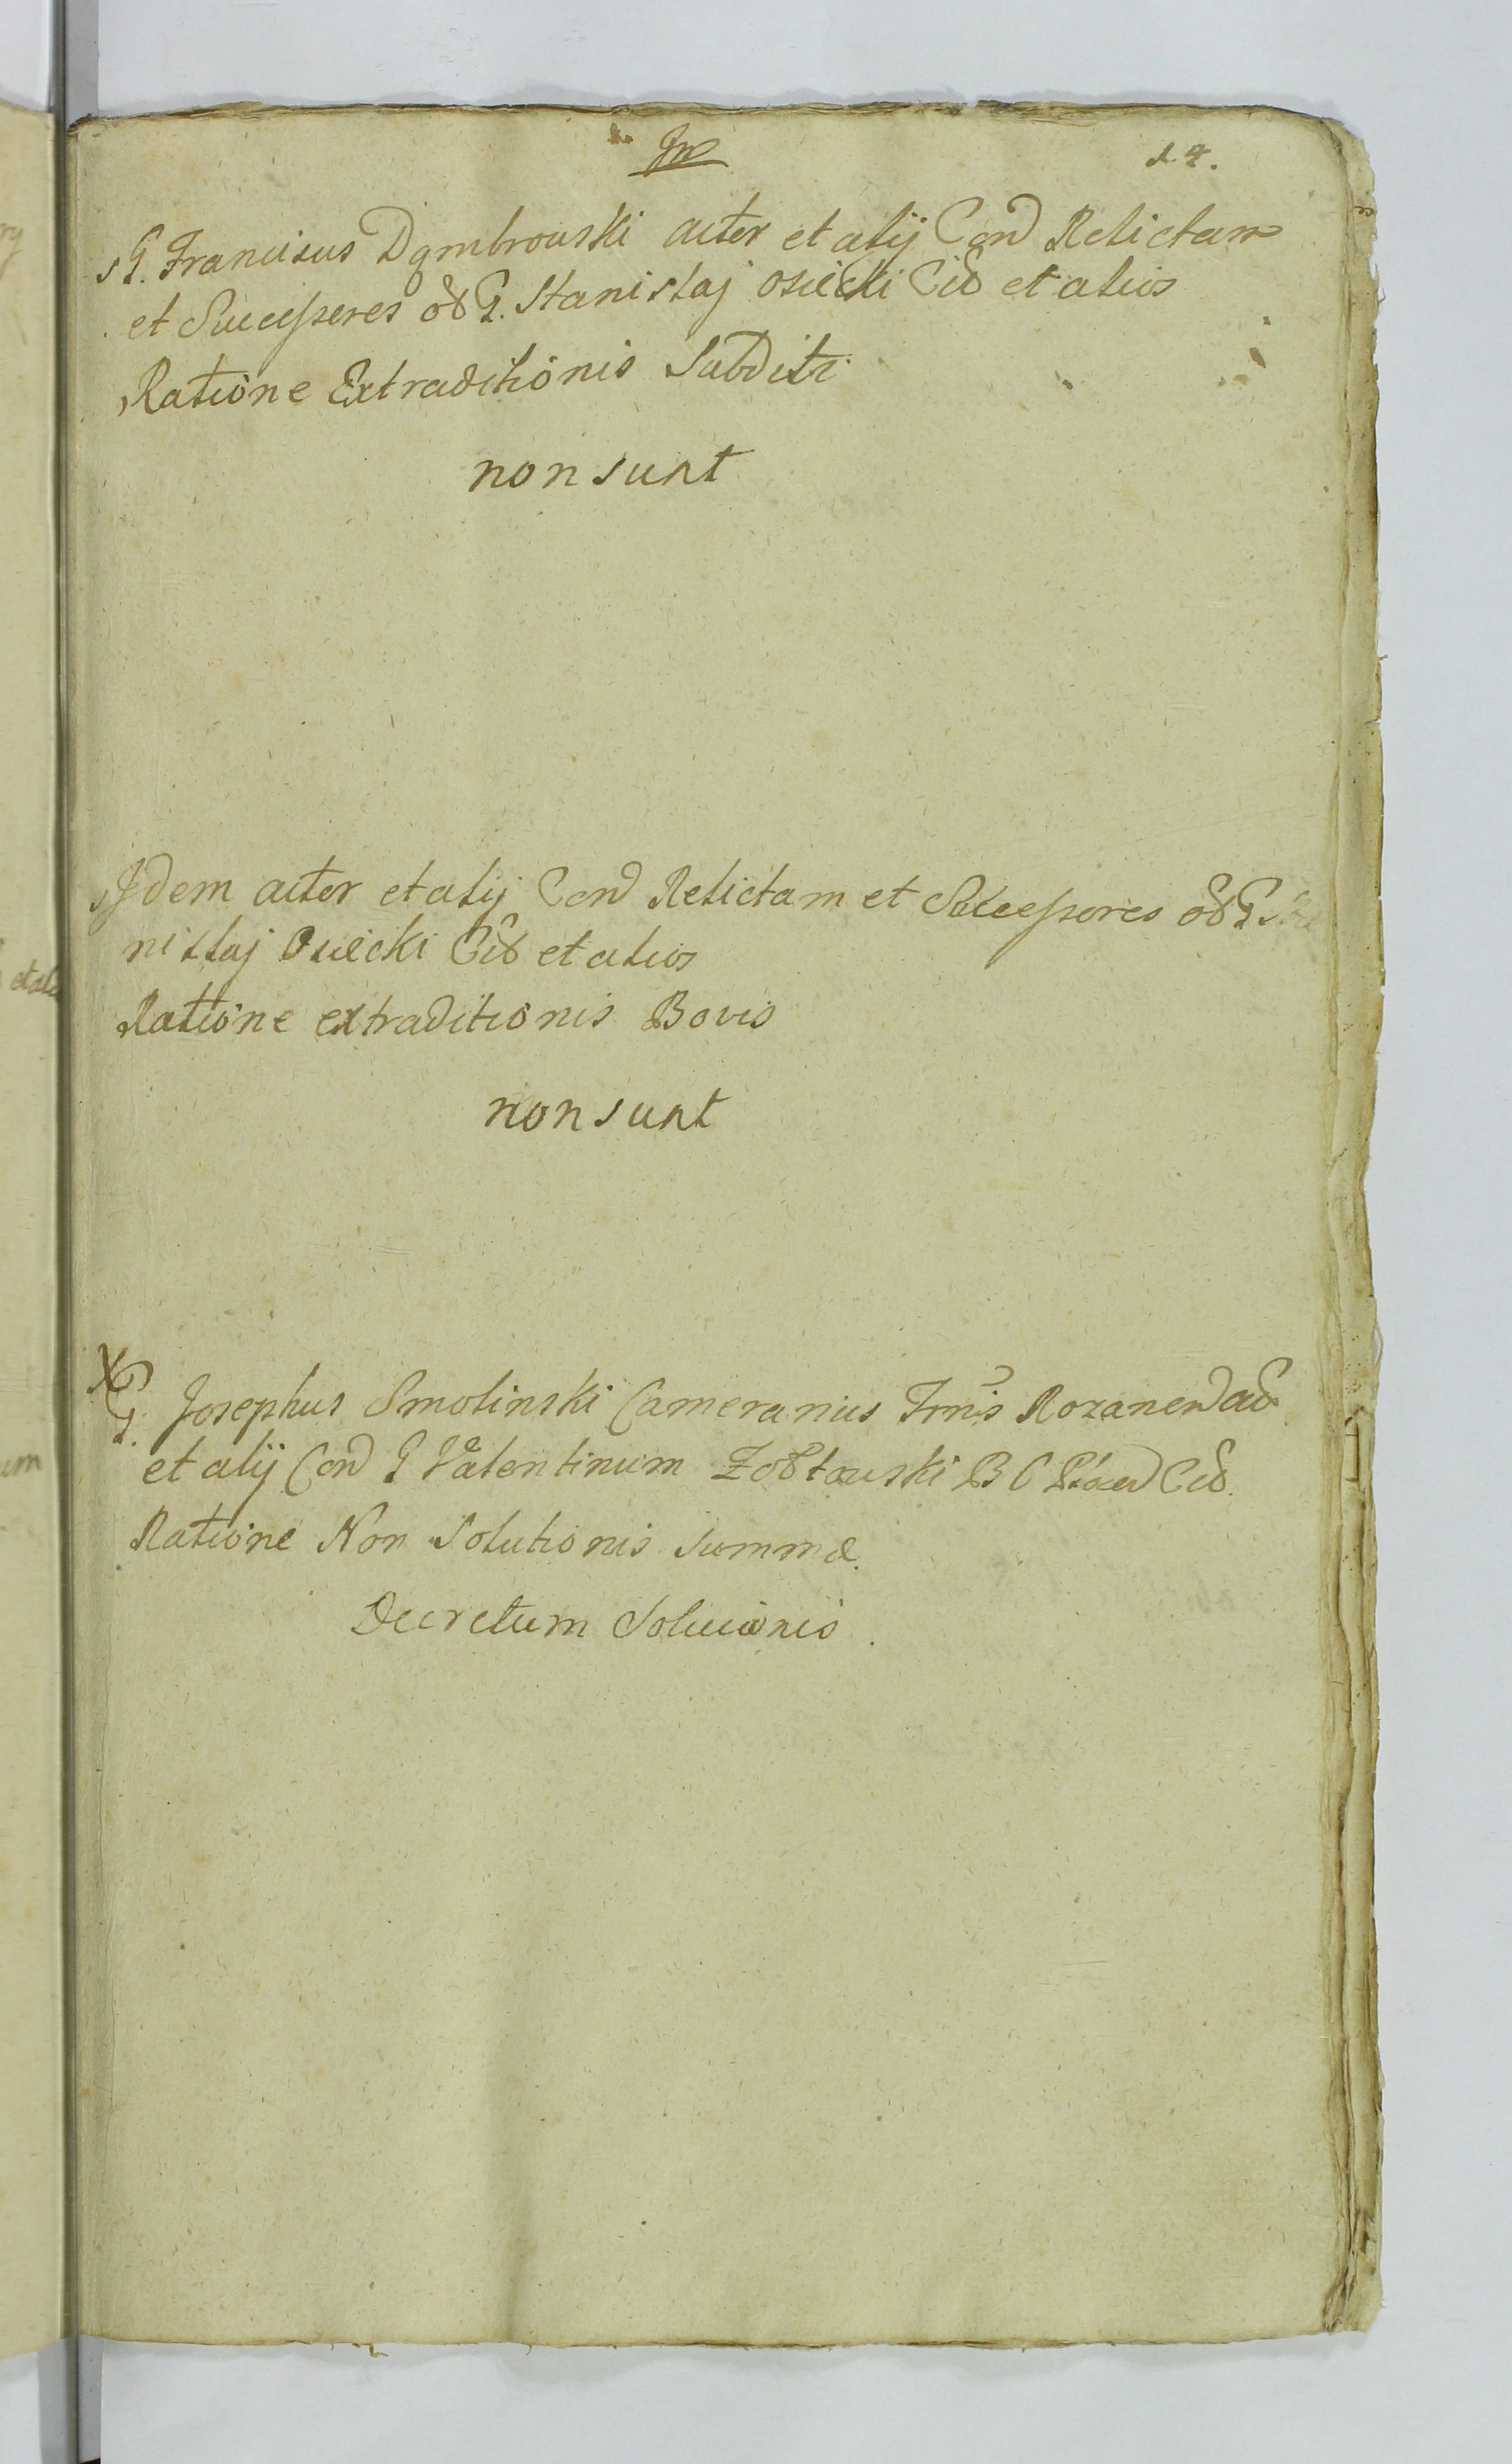 14.
G. Francisus Dąmbrouski actor et alij Con Relictam
et Successores od G. Stanislaj osiecki Cit et alios
Ratione Extraditionis Subditi
non sunt
Idem actor et alij Con Relictam et Successores od G
nislaj Osiecki Cit et alios
Ratione extraditionis Bovis
non sunt
X
G. Josephus Smolinski Camerarius Trris Rozanen
et alij Con G Valentinum B C Cit.
Ratione Non Solutionis Summæ.
Decretum Soluionis.